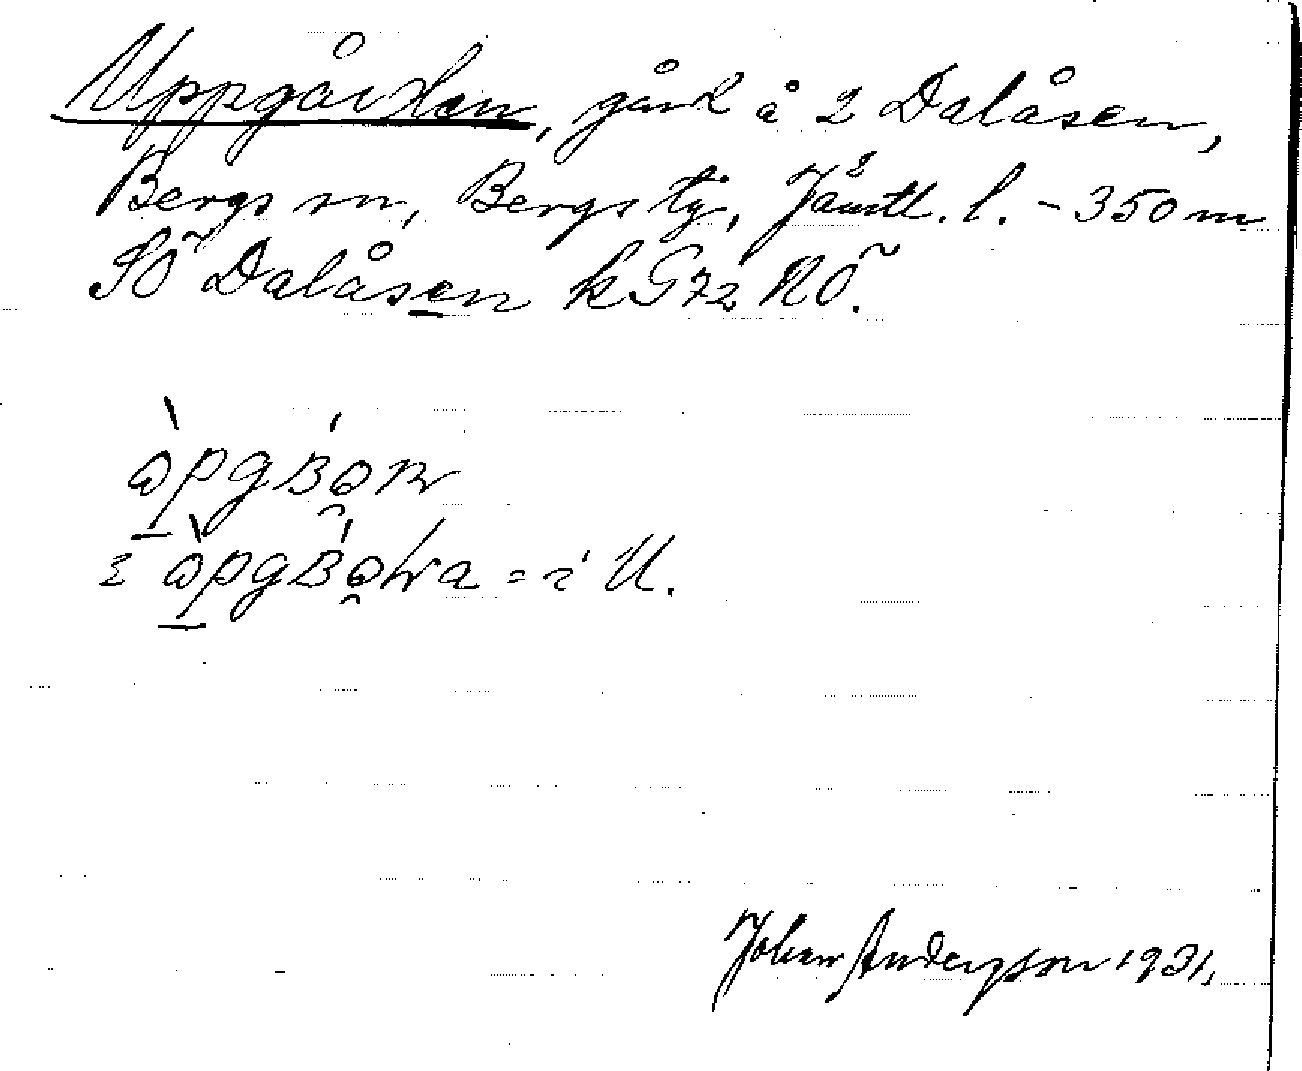 Uppgården, gård å 2 Dalåsen,
Bergs sn, Bergs tg, Jämtl. l. - 350 m
SÖ Dalåsen k G 72 NÖ.
= i U.
Johan Andersson 1931.